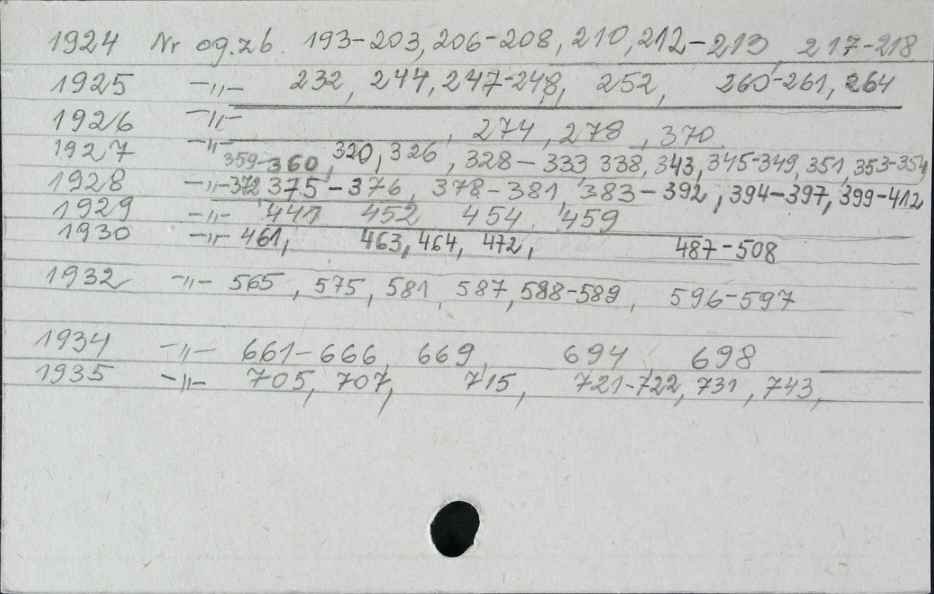 1924 Nr og.zb. 193-203, 206-208, 210, 212-213, 217-218
1925 -"- 232, 244, 247-248, 252, 260-261, 264
1926 -"- , 274, 278, 370
1927 -"- 320, 326, 328-333 338, 343, 345-349, 351, 353-354
359-360,
1928 -"- 372, 375-376, 378-381, 383-392, 394-397, 399-412
1929 -"- 441 452 454 459
1930 -"- 461, 463, 464, 472, 487-508
1932 -"- 565, 575, 581, 587, 588-589, 596-597
1934 -"- 661-666, 669, 694, 698
1935 -"- 705, 707, 715, 721-722, 731, 743,